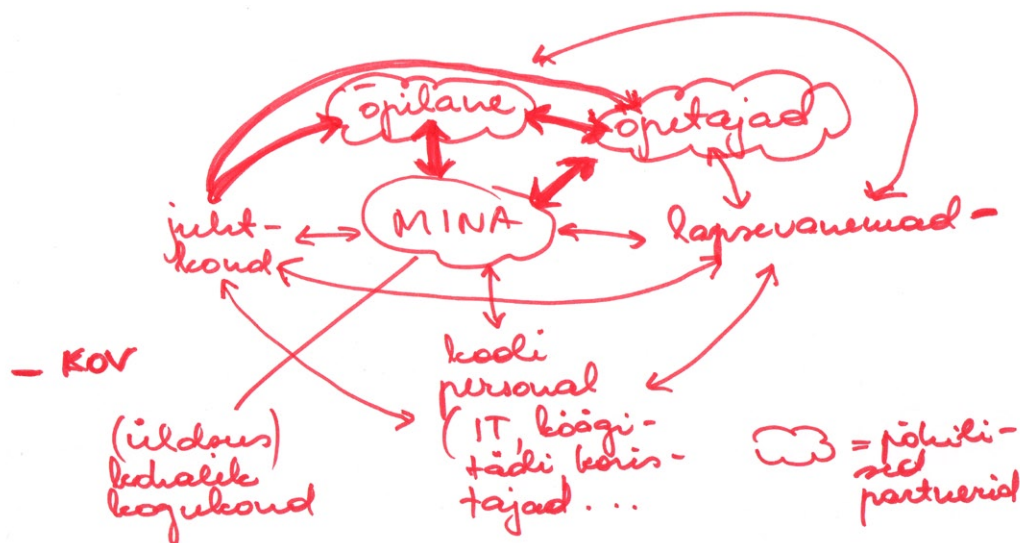 õpilane
õpetajad
juht-
kond
MINA
lapsevanemad -
- KOV
kooli
personal
(IT, köögi-
tädi, koris-
tajad...
(üldsus)
kohalik
kogukond
= põhili-
sed
partnerid